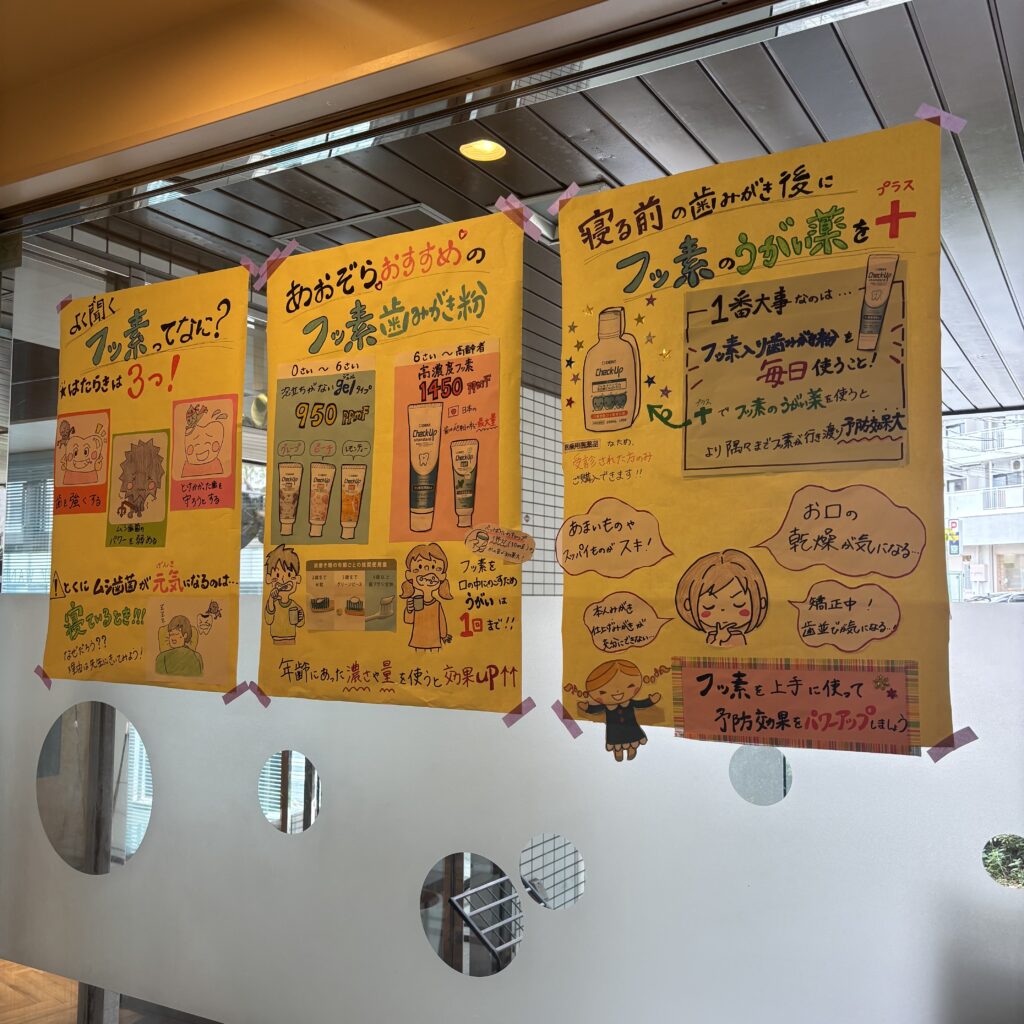 よく聞く
フッ素ってなに?
★はたらきは3つ!
歯を強くする
ムシ歯菌の
パワーを弱める
とけかかった歯を
守ろうとする
!とくにムシ歯菌が元気になるのは…
げんき
寝ているとき!!!
なぜだろう??
理由は先生にきいてみよう!
あおぞらおすすめの
フッ素歯みがき粉
0さい〜6さい
泡立ちがないgelタイプ
950ppmF
グレープ
ピーチ
レモンティー
6さい〜高齢者
高濃度フッ素
1450ppmF
日本の
最大量
Check-Up
フッ素を
口の中にのこすため
うがいは
1回まで!!
年齢にあった濃さや量を使うと効果UP↑↑
寝る前の歯みがき後に
フッ素のうがい薬を+
プラス
Check-Up
1番大事なのは…
フッ素入り歯みがき粉を
毎日使うこと!
プラス
+でフッ素のうがい薬を使うと
より隅々までフッ素が行き渡り予防効果大
Check-Up
医歯用医薬品なため、
受診された方のみ
ご購入できます!!
あまいものや
スッパイものがスキ!
お口の
乾燥が気になる…
本人みがき
仕上げみがきが
充分にできない…
矯正中!
歯並びが気になる…
フッ素を上手に使って
予防効果をパワーアップしましょう